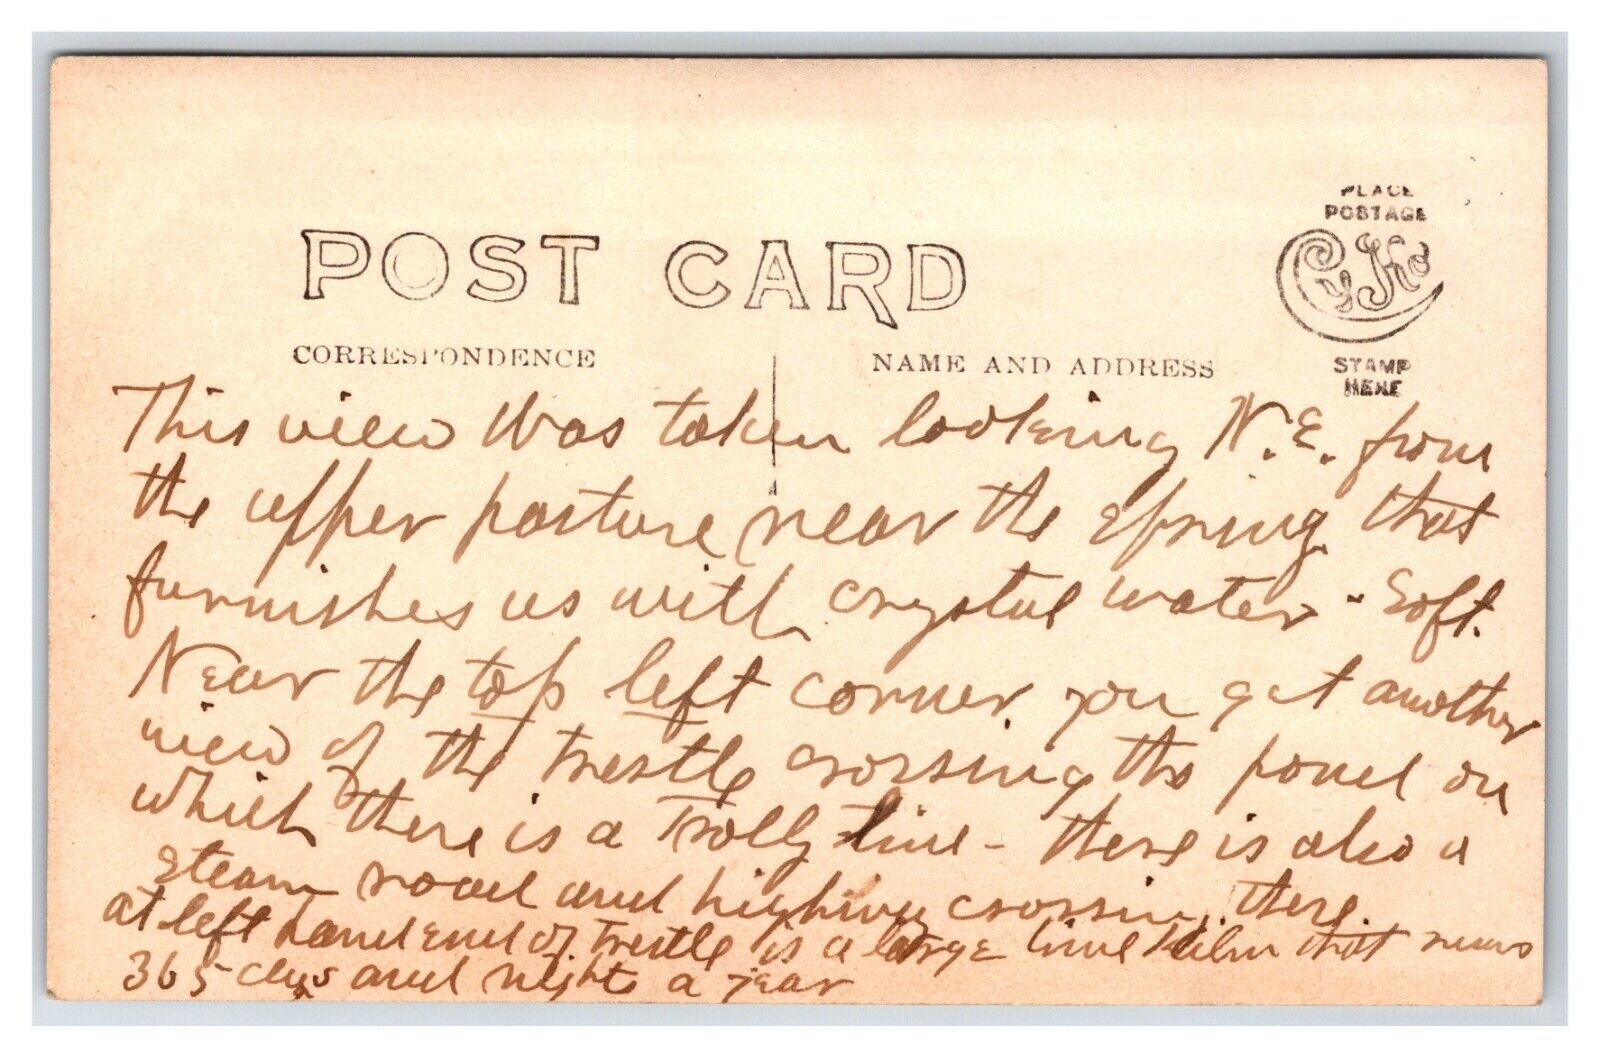 PLACE
POSTAGE
CyKo
STAMP
HERE
POST CARD
CORRESPONDENCE
NAME AND ADDRESS
This view Was taken looking N.E. from
the upper pasture near the spring that
furnishes us with crystal water - Soft.
Near the top left corner you get another
view of the trestle crossing the pond on
which there is a Trolly line - there is also a
steam road and highway crossing there.
at left hand end of trestle is a large lime kiln that runs
365 days and nights a year